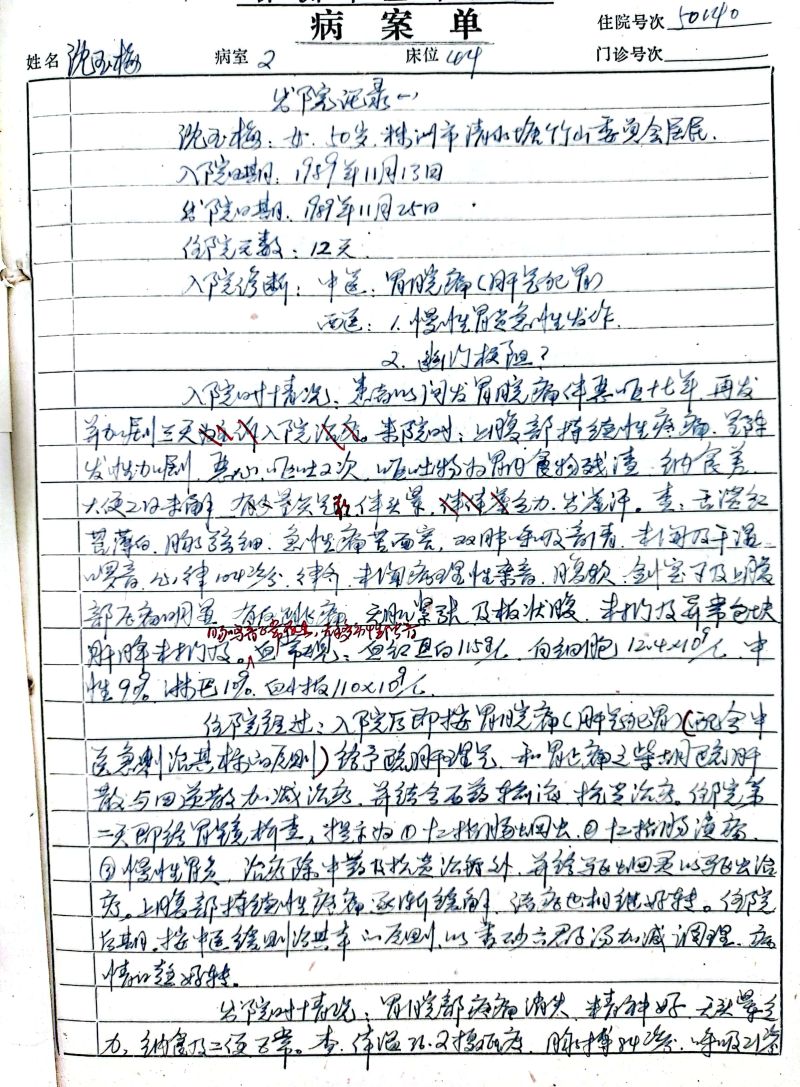 病案单
住院号次 50140
姓名 沈玉梅 病室 2 床位 44 门诊号次
出院记录(一)
沈玉梅,女,50岁,株洲市清水塘竹山委员会居民。
入院日期:1989年11月13日
出院日期:1989年11月25日
住院天数:12天
入院诊断:中医:胃脘痛(肝气犯胃)
西医:1.慢性胃炎急性发作
2.幽门梗阻?
入院时情况:患者以间发胃脘痛伴呕吐十七年,再发
并加剧三天入院。来院时:上腹部持续性疼痛,呈阵
发性加剧,恶心,呕吐2次,呕吐物为胃内食物残渣,纳食差,
大便2日未解,伴头晕,乏力,出冷汗。查:舌淡红
苔薄白,脉弦细,急性痛苦面容,双肺呼吸音清,未闻及干湿
啰音,心律104次/分,律齐,未闻病理性杂音,腹软,剑突下及上腹
部压痛明显,有反跳痛,无肌紧张及板状腹,未扪及异常包块
肝脾未扪及。血常规:血红蛋白115g/L,白细胞12.4×10⁹/L,中
性99%,淋巴1%,血小板110×10⁹/L
住院经过:入院后即按胃脘痛(肝气犯胃)(配合中
医急则治其标的原则)给予疏肝理气,和胃止痛之柴胡疏肝
散与四逆散加减治疗,并结合西药输液,抗炎治疗。住院第
二天即经胃镜检查,提示为①十二指肠蛔虫,②十二指肠溃疡,
③慢性胃炎,治疗除中药及抗炎治疗外,并给驱蛔灵以驱虫治
疗。上腹部持续性疼痛逐渐缓解,诸症也相继好转。住院
后期,按中医缓则治其本的原则,以香砂六君子汤加减调理,病
情日趋好转。
出院时情况:胃脘部疼痛消失,精神好,无头晕乏
力,纳食及二便正常。查:体温36.2摄氏度,脉搏84次/分,呼吸21次